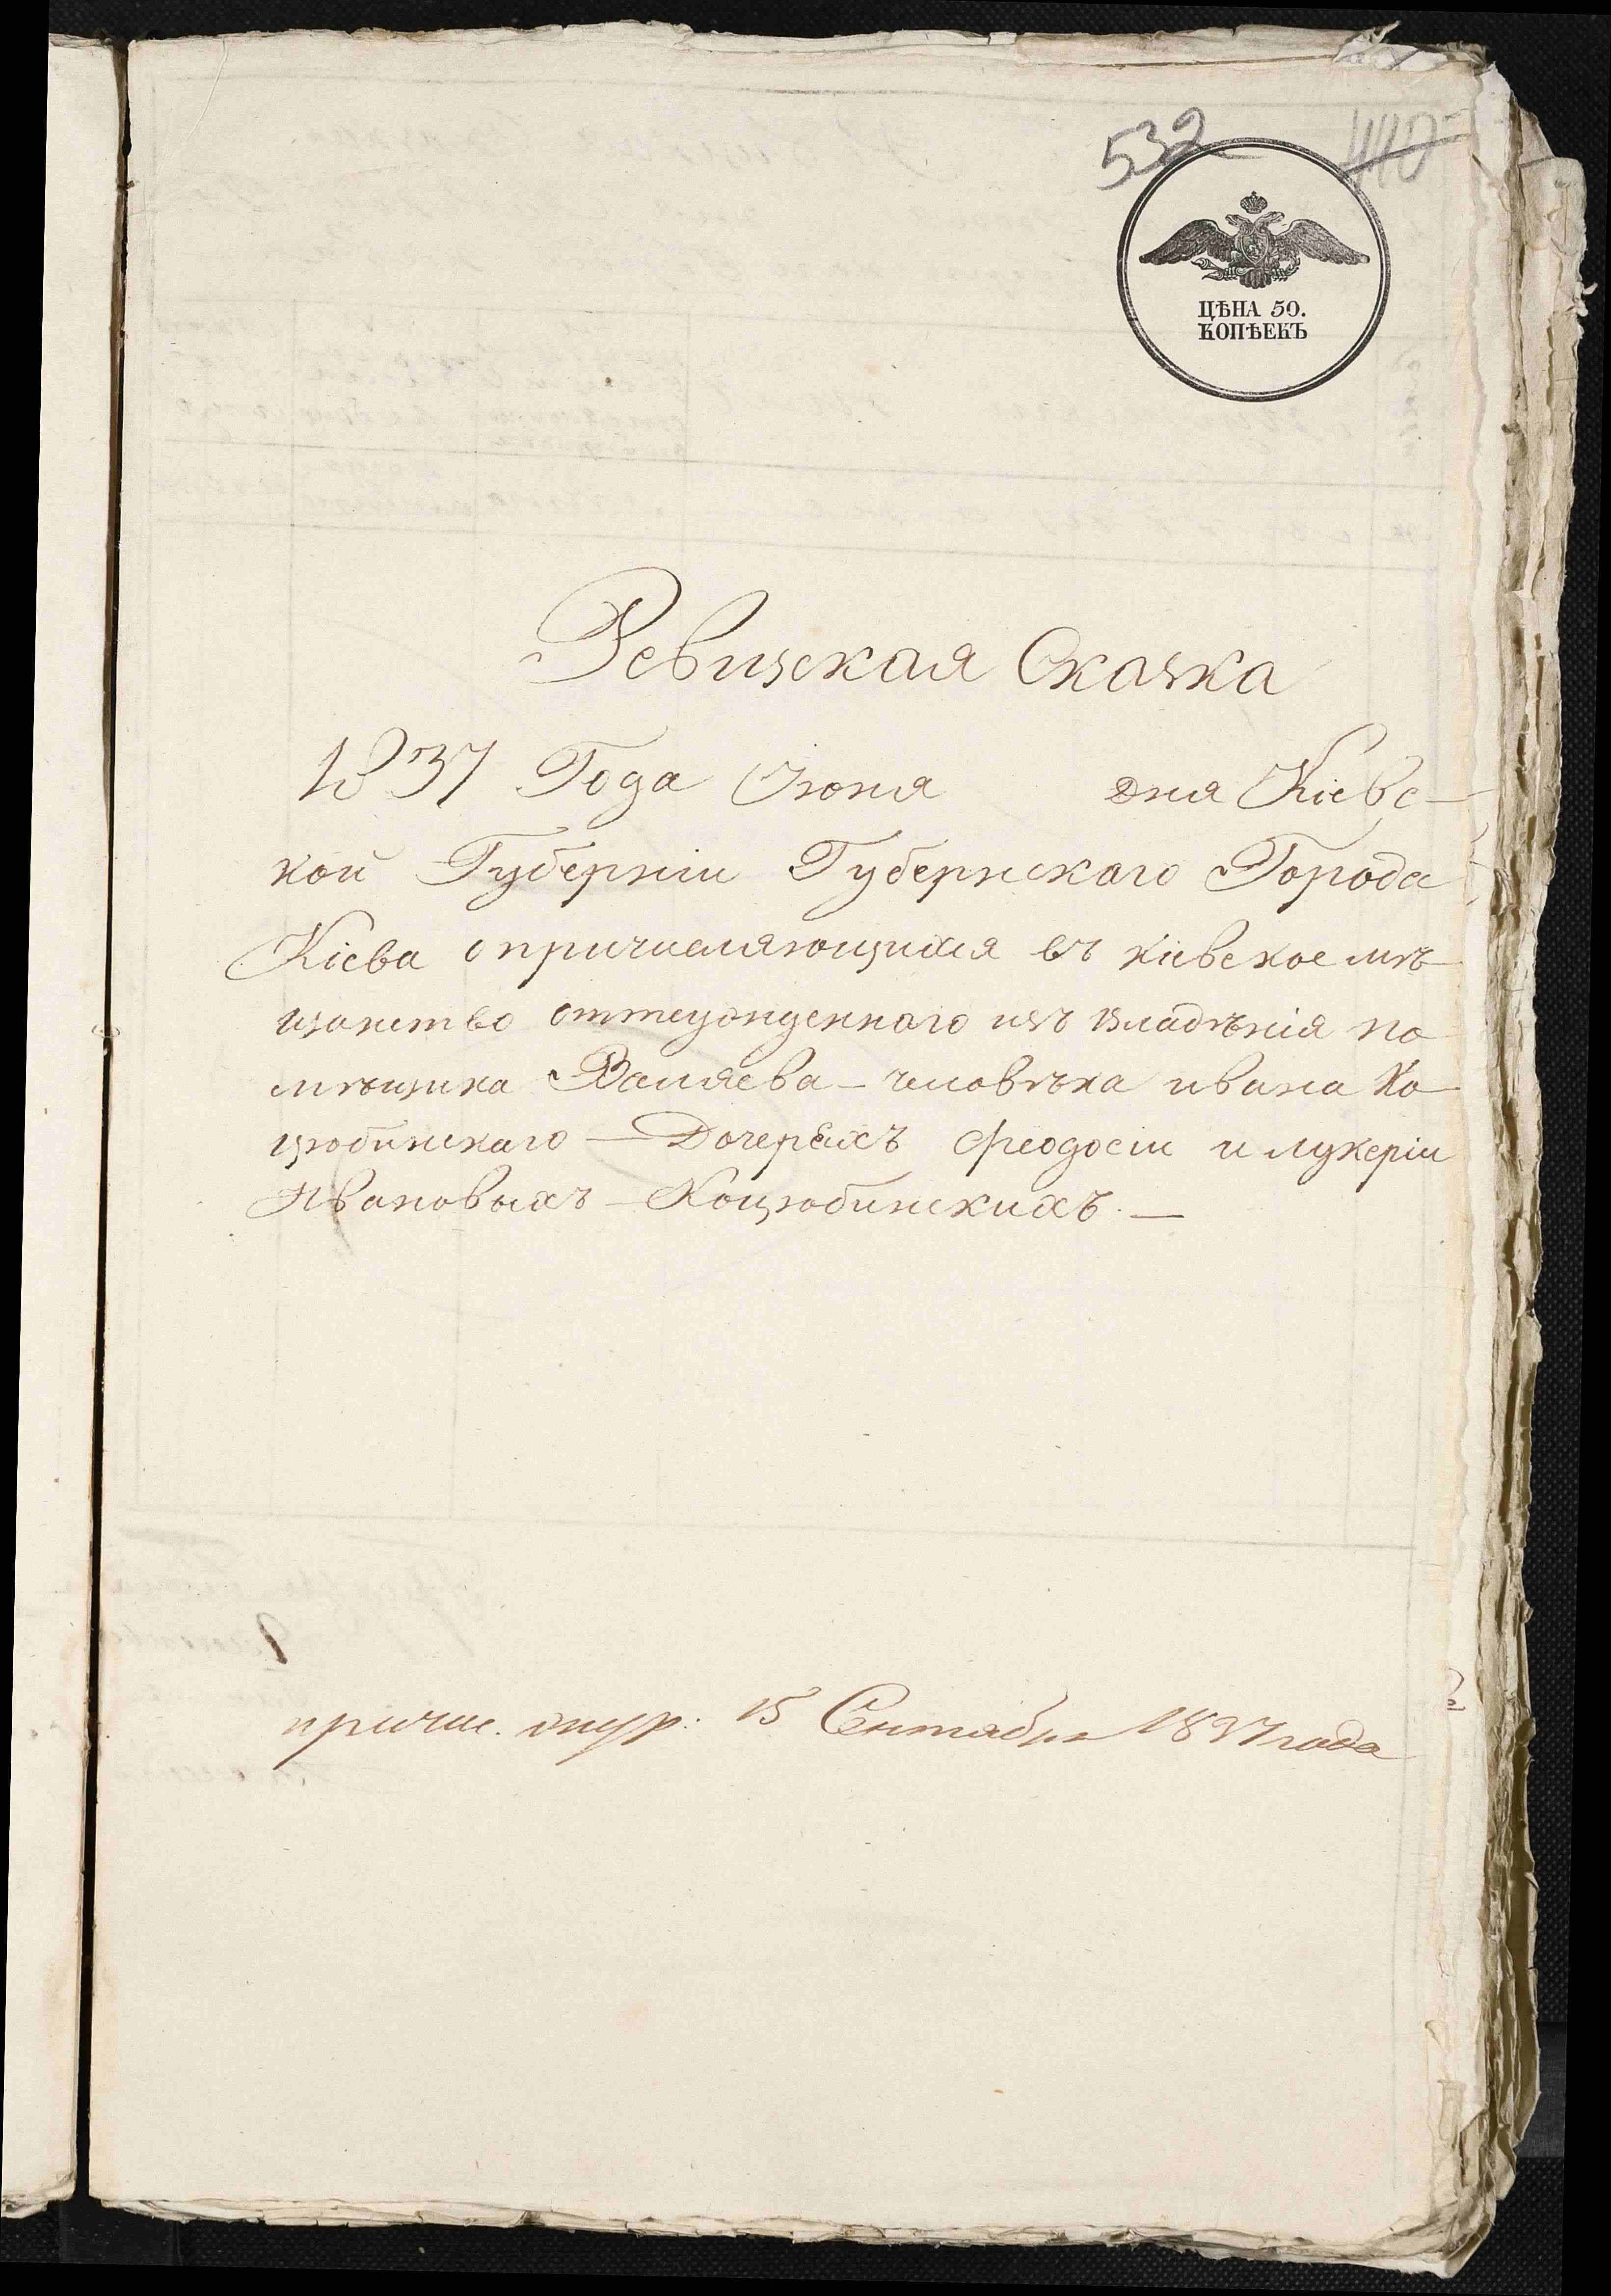 532 440
ЦѢНА 50.
КОПѢЕКЪ
Ревизская Сказка
1837 Года Июня дня Кіевс-
кой Губерніи Губернскаго Города
Кіева о причисляющихся въ кіевское мѣ-
щанство оттсужденнаго изъ владѣнія по-
мѣщика Валяева - человѣка ивана Ко-
цюбинскаго - Дочеряхъ Феодосіи и лукеріи
Ивановыхъ - Коцюбинскихъ. —
причис. 15 Сентября 1837 года